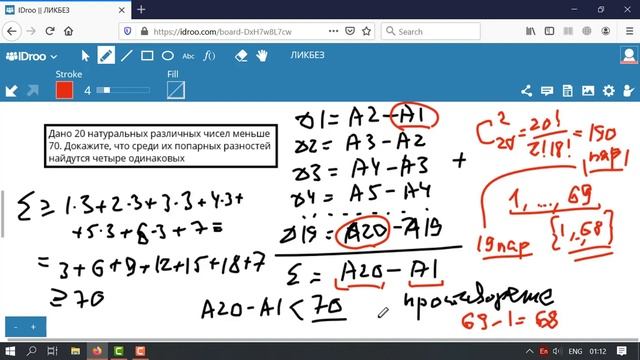 IDroo || ЛИКБЕЗ
https://idroo.com/board-DxH7w8L7cw
IDroo
ЛИКБЕЗ
Stroke
4
Fill
Дано 20 натуральных различных чисел меньше
70. Докажите, что среди их попарных разностей
найдутся четыре одинаковых
Σ ≥ 1·3+2·3+3·3+4·3+
+5·3+6·3+7=
=3+6+9+12+15+18+7
≥70
δ1=A2-A1
δ2=A3-A2
δ3=A4-A3
δ4=A5-A4
δ19=A20-A19
+
Σ=A20-A1
A20-A1<70
69-1=68
C²₂₀=20!/2!18!=190
1 пар
1,...,69
19 пар
{1,..,68}
EN
01:12